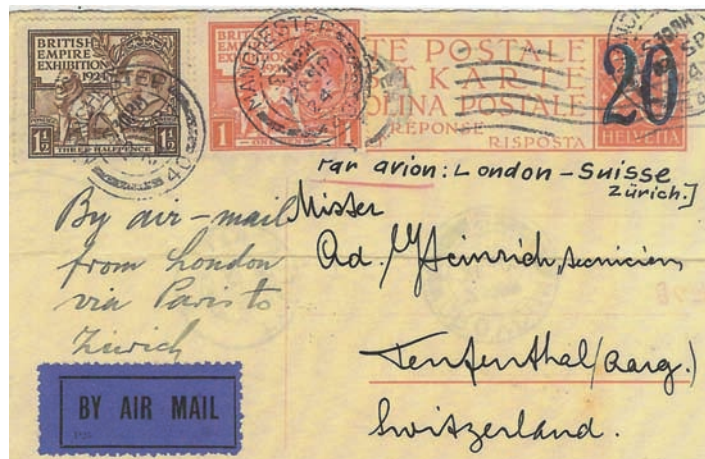 BRITISH
EMPIRE
EXHIBITION
1924
1½ 1½
THREE HALFPENCE
BRITISH
EMPIRE
EXHIBITION
1924
1 1
MANCHESTER
5 30PM
12 SP
24
TE POSTALE
TKARTE
OLINA POSTALE
RÉPONSE
RISPOSTA
20
HELVETIA
Par avion: London-Suisse
Zürich.]
By air-mail
from London
via Paris to
Zürich
Mister
Ad. Heinrich, technicien,
Teufenthal (Aarg.)
Switzerland.
BY AIR MAIL